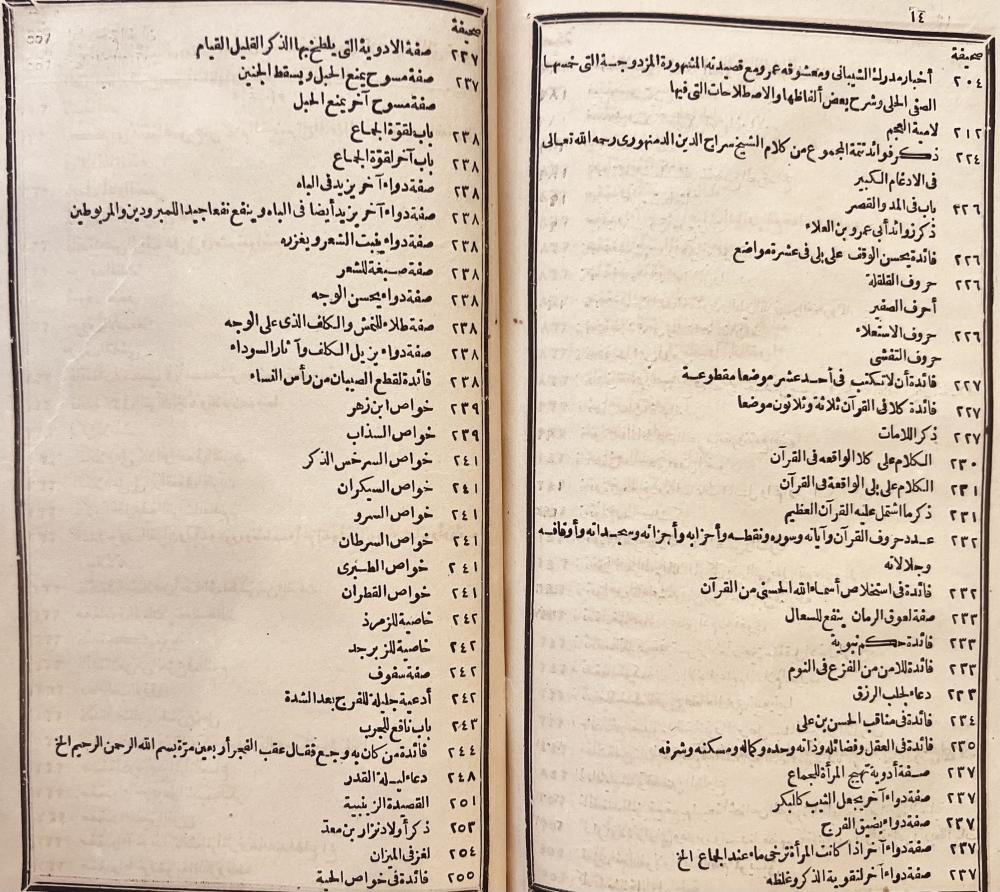 ١٤
صحيفة
٢٠٤ أخبار مدرك الشيبانى ومعشوقه عمرو مع قصيدته المشهورة المزدوجة التى خمسها
الصفى الحلى وشرح بعض ألفاظها والاصطلاحات التى فيها
٢١٢ لامية العجم
٢٢٤ ذكر فوائد تتمة المجموع من كلام الشيخ سراج الدين الدمنهورى رحمه الله تعالى
فى الادغام الكبير
٢٢٦ باب فى المد والقصر
ذكر زوائد أبى عمرو بن العلاء
٢٢٦ فائدة يحسن الوقف على بلى فى عشرة مواضع
٢٢٦ حروف القلقلة
أحرف الصفير
٢٢٦ حروف الاستعلاء
حروف التفشى
٢٢٧ فائدة أن لا تكتب فى أحد عشر موضعا مقطوعة
٢٢٧ فائدة كلا فى القرآن ثلاثة وثلاثون موضعا
٢٢٧ ذكر اللامات
٢٣٠ الكلام على كلا الواقعه فى القرآن
٢٣١ الكلام على بلى الواقعة فى القرآن
٢٣١ ذكر ما اشتمل عليه القرآن العظيم
٢٣٢ عدد حروف القرآن وآياته وسوره ونقطه وأحزابه وأجزائه وسجداته وأوقافه
وجلالاته
٢٣٢ فائدة فى استخلاص أسماء الله الحسنى من القرآن
٢٣٣ صفة لعوق الرمان ينفع للسعال
٢٣٣ فائدة حكم نبوية
٢٣٣ فائدة للامن من الفزع فى النوم
٢٣٣ دعاء لجلب الرزق
٢٣٤ فائدة فى مناقب الحسن بن على
٢٣٥ فائدة فى العقل وفضائله وذاته وحده وكماله ومسكنه وشرفه
٢٣٧ صفة أدوية تهيج المرأة للجماع
٢٣٧ صفة دواء آخر يجعل الثيب كالبكر
٢٣٧ صفة دواء يضيق الفرج
٢٣٧ صفة دواء آخر اذا كانت المرأة ترخى ماء عند الجماع الخ
٢٣٧ صفة دواء آخر لتقوية الذكر وغلظه
صحيفة
٢٣٧ صفة الادوية التى يلطخ بها الذكر القليل القيام
٢٣٧ صفة مسوح يمنع الحبل ويسقط الجنين
صفة مسوح آخر يمنع الحبل
٢٣٨ باب لقوة الجماع
٢٣٨ باب آخر لقوة الجماع
٢٣٨ صفة دواء آخر يزيد فى الباه
٢٣٨ صفة دواء آخر يزيد أيضا فى الباه وينفع نفعا جيدا للمبرودين والمربوطين
٢٣٨ صفة دواء ينبت الشعر ويغزره
٢٣٨ صفة صبغة للشعر
٢٣٨ صفة دواء يحسن الوجه
٢٣٨ صفة طلاء للنمش والكلف الذى على الوجه
٢٣٨ صفة دواء يزيل الكلف وآثار السوداء
٢٣٨ فائدة لقطع الصيبان من رأس النساء
٢٣٩ خواص ابن زهر
٢٣٩ خواص السذاب
٢٤١ خواص السرخس الذكر
٢٤١ خواص السيكران
٢٤١ خواص السرو
٢٤١ خواص السرطان
٢٤١ خواص الطبرى
٢٤١ خواص القطران
٢٤٢ خاصية للزمرذ
٢٤٢ خاصية للزبرجد
٢٤٢ صفة سفوف
٢٤٢ أدعية جليلة للفرج بعد الشدة
٢٤٣ باب نافع للجرب
٢٤٤ فائدة من كان به وجع فقال عقب الفجر أربعين مرة بسم الله الرحمن الرحيم الخ
٢٤٨ دعاء ليلة القدر
٢٥١ القصيدة الزينبية
٢٥٣ ذكر أولاد نزار بن معد
٢٥٤ لغز فى الميزان
٢٥٥ فائدة فى خواص الحبة